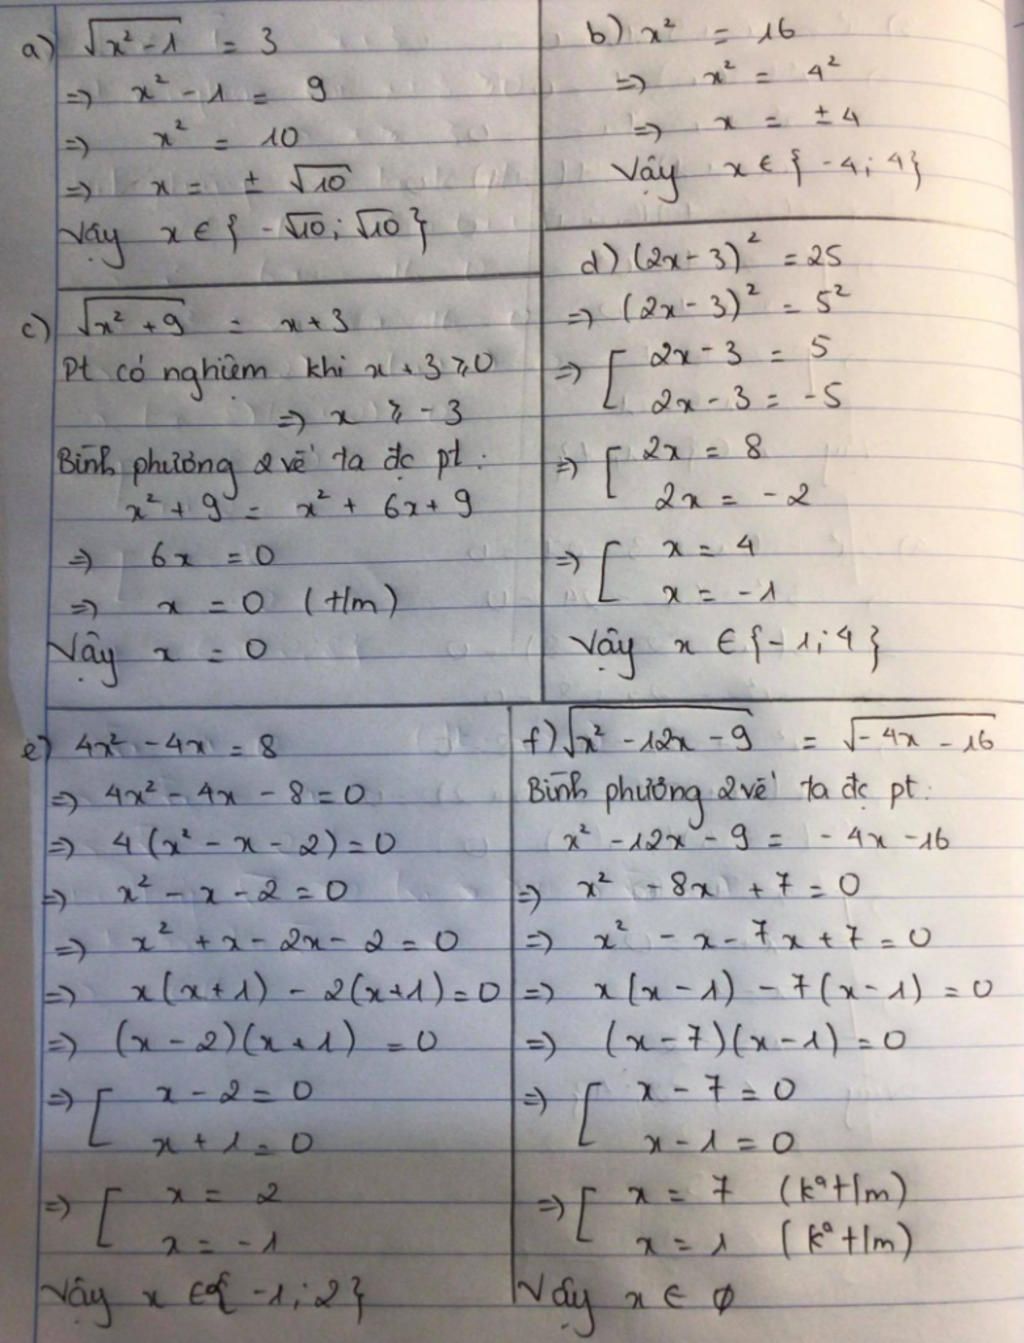 a) √(x² - 1) = 3
=> x² - 1 = 9
=> x² = 10
=> x = ± √10
Vậy x ∈ { -√10 ; √10 }
b) x² = 16
=> x² = 4²
=> x = ± 4
Vậy x ∈ { -4 ; 4 }
c) √(x² + 9) = x + 3
Pt có nghiệm khi x + 3 ≥ 0
=> x ≥ -3
Bình phương 2 vế ta đc pt :
x² + 9 = x² + 6x + 9
=> 6x = 0
=> x = 0 (t/m)
Vậy x = 0
d) (2x - 3)² = 25
=> (2x - 3)² = 5²
=> [ 2x - 3 = 5
2x - 3 = -5
=> [ 2x = 8
2x = -2
=> [ x = 4
x = -1
Vậy x ∈ { -1 ; 4 }
e) 4x² - 4x = 8
=> 4x² - 4x - 8 = 0
=> 4 (x² - x - 2) = 0
=> x² - x - 2 = 0
=> x² + x - 2x - 2 = 0
=> x (x + 1) - 2 (x + 1) = 0
=> (x - 2)(x + 1) = 0
=> [ x - 2 = 0
x + 1 = 0
=> [ x = 2
x = -1
Vậy x ∈ { -1 ; 2 }
f) √(x² - 12x - 9) = √(-4x - 16)
Bình phương 2 vế ta đc pt :
x² - 12x - 9 = -4x - 16
=> x² - 8x + 7 = 0
=> x² - x - 7x + 7 = 0
=> x (x - 1) - 7 (x - 1) = 0
=> (x - 7)(x - 1) = 0
=> [ x - 7 = 0
x - 1 = 0
=> [ x = 7 (kº t/m)
x = 1 (kº t/m)
Vậy x ∈ ∅